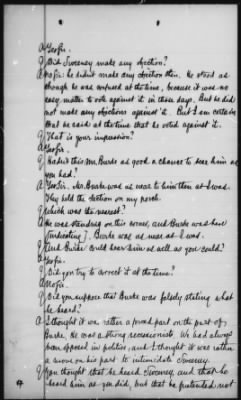 A Yes sir.
Q Did Sweeney make any objection?
A No sir he didn't make any objection then. He stood as
though he was confused at the time, because it was no
easy matter to vote against it in those days. But he did
not make any objections against it. But I am certain
that he said at the time that he voted against it.
Q That is your impression?
A Yes sir.
Q Hadn't this Mr. Burke as good a chance to hear him as
you had?
A Yes Sir. Mr. Burke was as near to him then as I was.
They held the election on my porch.
Q Which was the nearest?
A He was standing on this corner, and Burke was here
[indicating]. Burke was as near as I was.
Q And Burke could hear him as well as you could?
A Yes sir.
Q Did you try to correct it at the time?
A No sir.
Q Did you suppose that Burke was falsely stating what
he heard?
A I thought it was rather a proud part on the part of
Burke. He was a strong secessionist. We had always
been opposed in politics, and I thought it was rather
a on his part to intimidate Sweeney.
Q You thought that he heard Sweeney, and that he
heard him as you did, but that he pretended not